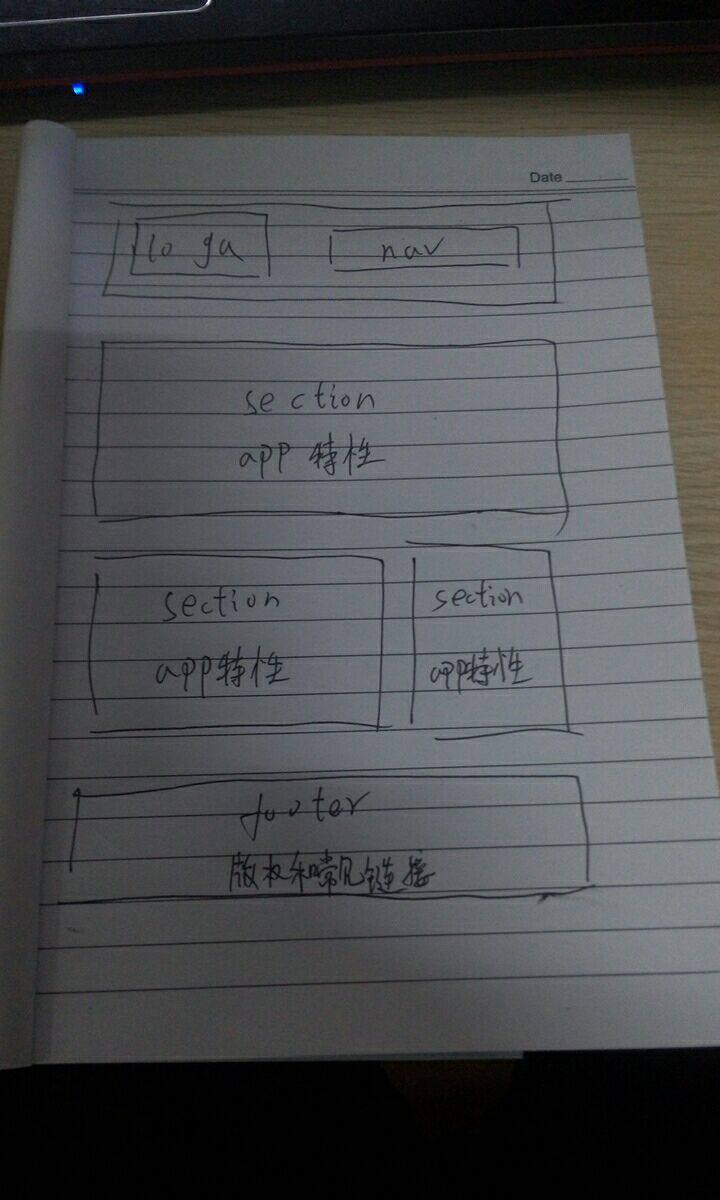 Date
loga
nav
section
app 特性
section
app特性
section
app特性
footer
版权和常见链接